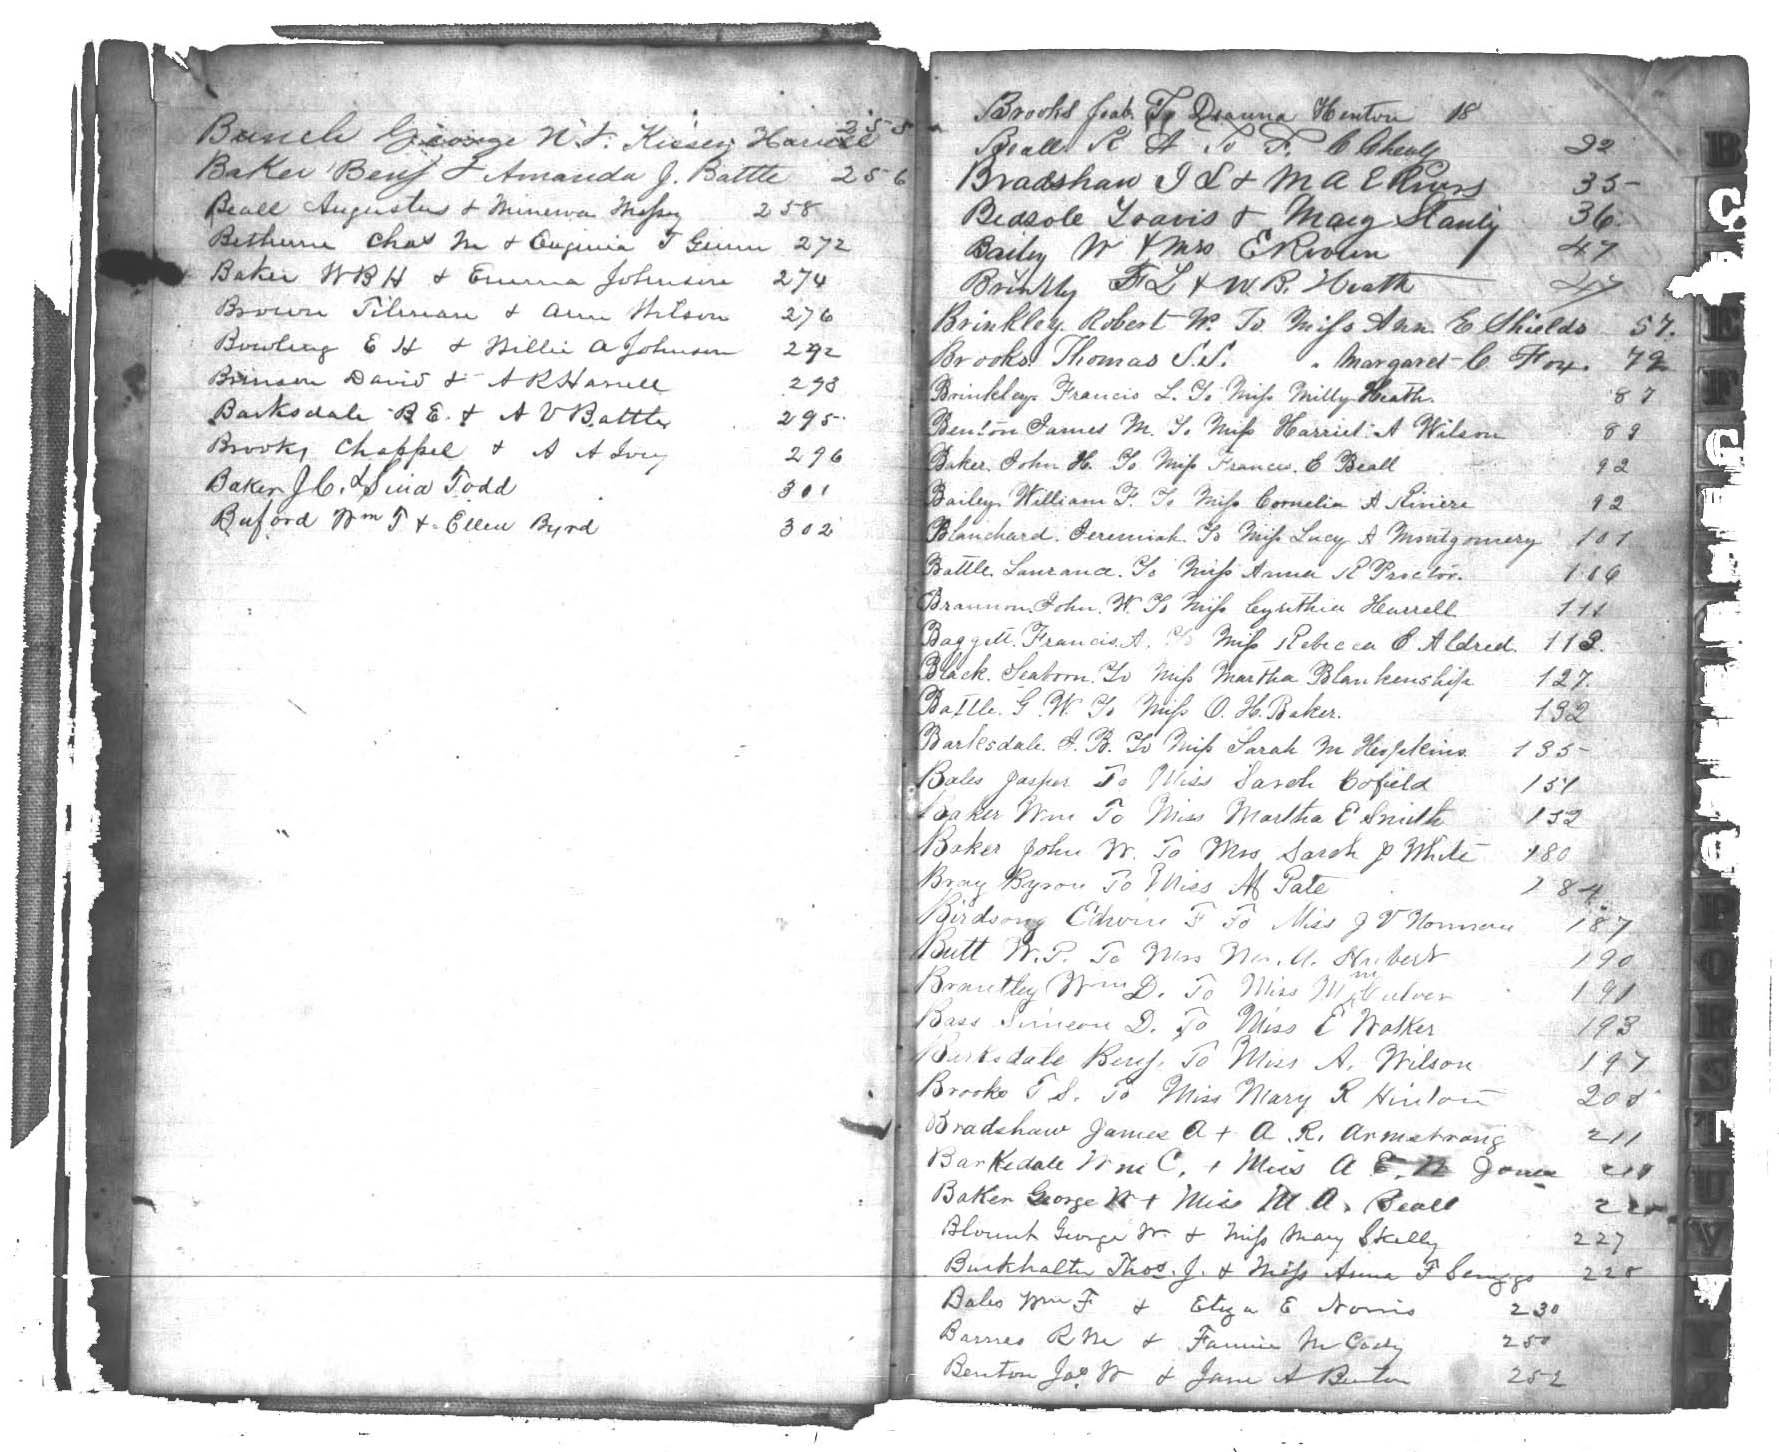 Bunch George N. & Kissey Harrell 255
Baker Benj & Amanda J. Battle 256
Beall Augustus & Minerva Massey 258
Bethune Chas M & Eugenia T Gunn 272
Baker W B H & Emma Johnson 274
Brown Tilman & Ann Wilson 276
Bowling E H & Willie A Johnson 292
Brinson David & A R Harrell 293
Barksdale B E. & A V Battle 295
Brooks Chappel & A A Ivey 296
Baker J C. & Sina Todd 301
Buford Wm T & Ellen Byrd 302
Brooks Joab To Henton 18
Beall R A To F. C Cheely 32
Bradshaw J L & M A E Rivers 35
Bedsole Travis & Mary Stanly 36
Bailey W & Mrs E 47
Brinkly F L & W. B. Heath 47
Brinkley Robert W. To Miss Ann E Shields 57.
Brooks Thomas S. S. " Margaret C Fox. 72
Brinkley Francis L. To Miss Milly Heath. 87
Benton James M. To Miss Harriet A Wilson 89
Baker. John H. To Miss Frances. E Beall 92
Bailey. William F. To Miss Cornelia A Riviere 92
Blanchard. Jeremiah. To Miss Lucy A Montgomery 101
Battle. Laurance. To Miss Anna R Proctor. 106
Brannon. John. W. To Miss Cynthia Harrell 111
Baggett. Francis. A. To Miss Rebecca E Aldred. 113.
Black. Seaborn. To Miss Martha Blankenship 127.
Battle. G. W. To Miss O. H. Baker. 132
Barksdale. J. B. To Miss Sarah M Hopkins 135
Bales Jasper To Miss Sarah Cofield 151
Baker Wm To Miss Martha E Smith 152
Baker John W. To Mrs Sarah J White 180
Bray Byron To Miss M Pate 184
Birdsong Edwin F To Miss J V Norman 187
Butt W. P. To Mrs A. Hubert 190
Brantley Wm D. To Miss M 191
Bass Simeon D. To Miss E Walker 193
Barksdale Benj. To Miss A. Wilson 197
Brooks T S. To Miss Mary R Hinton 205
Bradshaw James A + A. R. Armstrong 211
Barksdale Wm C. + Miss A E. W Jones 219
Baker George W + Miss M A. Beall 225
Blount George W. & Miss Mary Skelly 227
Burkhalter Thos. J. & Miss Anna F Scruggs 228
Bales Wm F & Eliza E Norris 230
Barnes R M & Fannie M Cody 250
Benton Jas W & Jane A Benton 252
B
C
E
F
G
P
Q
R
S
T
U
V